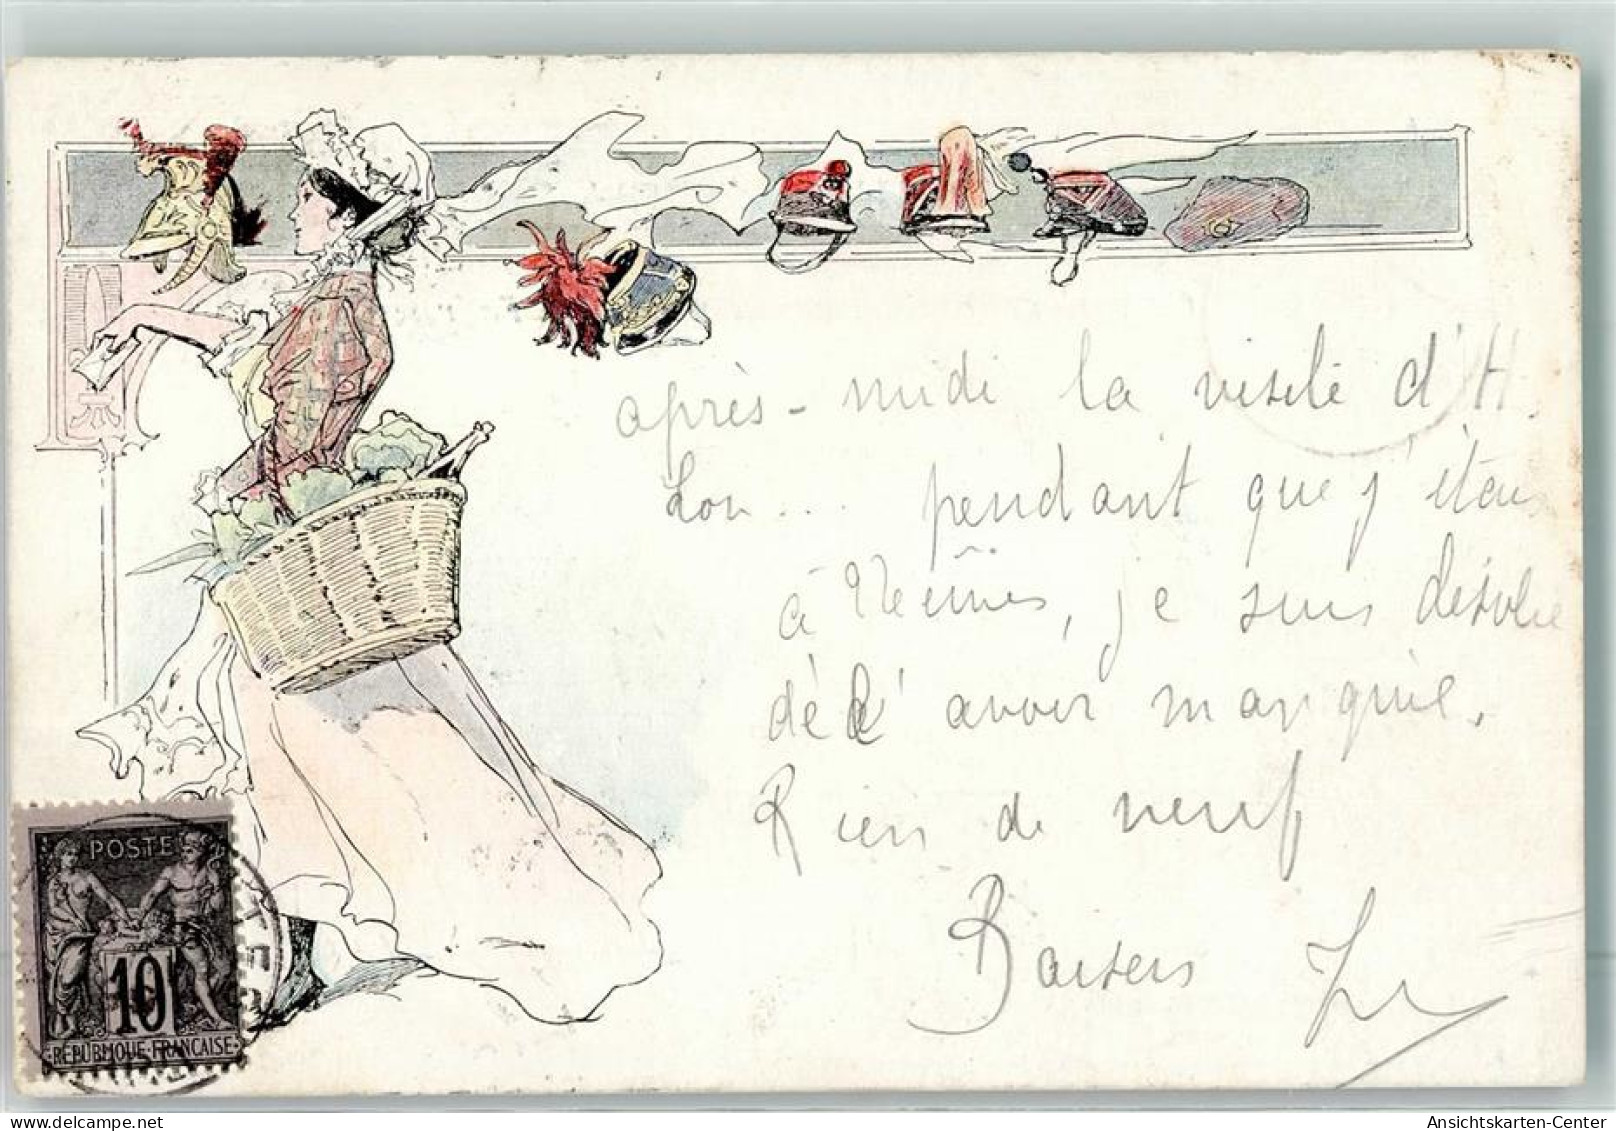 après-midi la visite d'H.
Lou... pendant que j'étais
à              , je suis désolée
de l'avoir manquée.
Rien de neuf
Baisers
POSTE
10
RÉPUBLIQUE FRANÇAISE
Ansichtskarten-Center